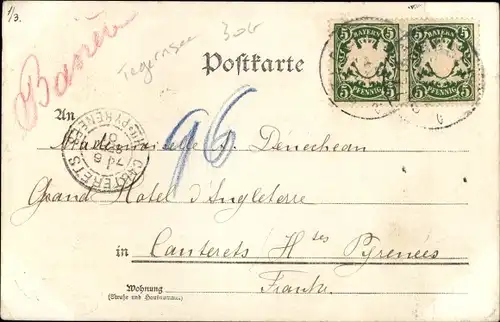 1/3.
Bavière
Tegernsee
306
Postkarte
BAYERN BAYERN
5 5 5 5
PFENNIG PFENNIG
An
96
CAUTERETS
Hᵗᵉˢ PYRENEES
Mademoiselle S. Dénechean
Grand Hotel d'Angleterre
in Cauterets Hᵗᵉˢ Pyrenées
Wohnung
(Straße und Hausnummer)